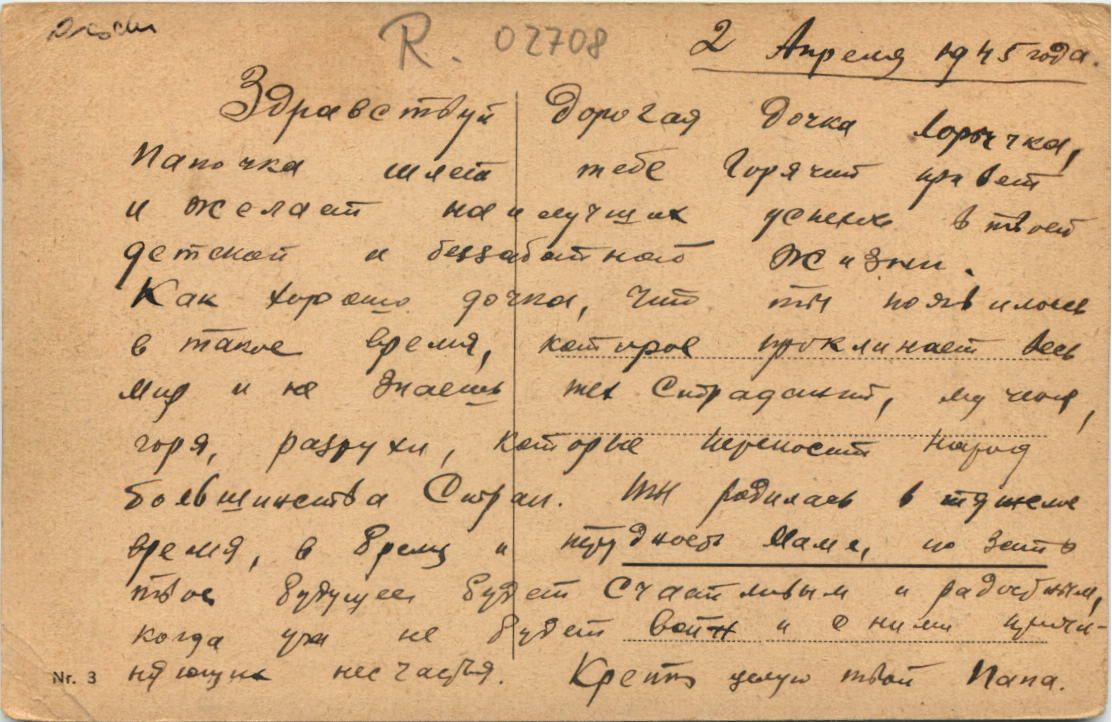 R. 02708
2 Апреля 1945 года.
Здравствуй дорогая дочка Лорочка,
Папочка шлет тебе горячий привет
и желает наилучших успехов в твоей
детской и беззаботной жизни.
Как хорошо дочка, что ты появилась
в такое время, которое проклинает весь
мир и не знаешь тех страданий, мучений,
горя, разрухи, которые переносит народ
большинства Стран. Ты родилась в тяжелое
время, в время и трудность маме, но зато
твое будущее будет счастливым и радостным,
когда уж не будет войн и с ними причи-
няющих несчастья. Крепко целую твой Папа.
Nr. 3